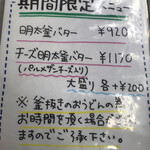 期間限定メニュー
明太釜バター ¥920
チーズ明太釜バター ¥1170
(パルメザンチーズ入り)
大盛り 各+¥200
※ 釜抜きのおうどんの為
お時間を頂く場合が
ますのでご了承下さい。